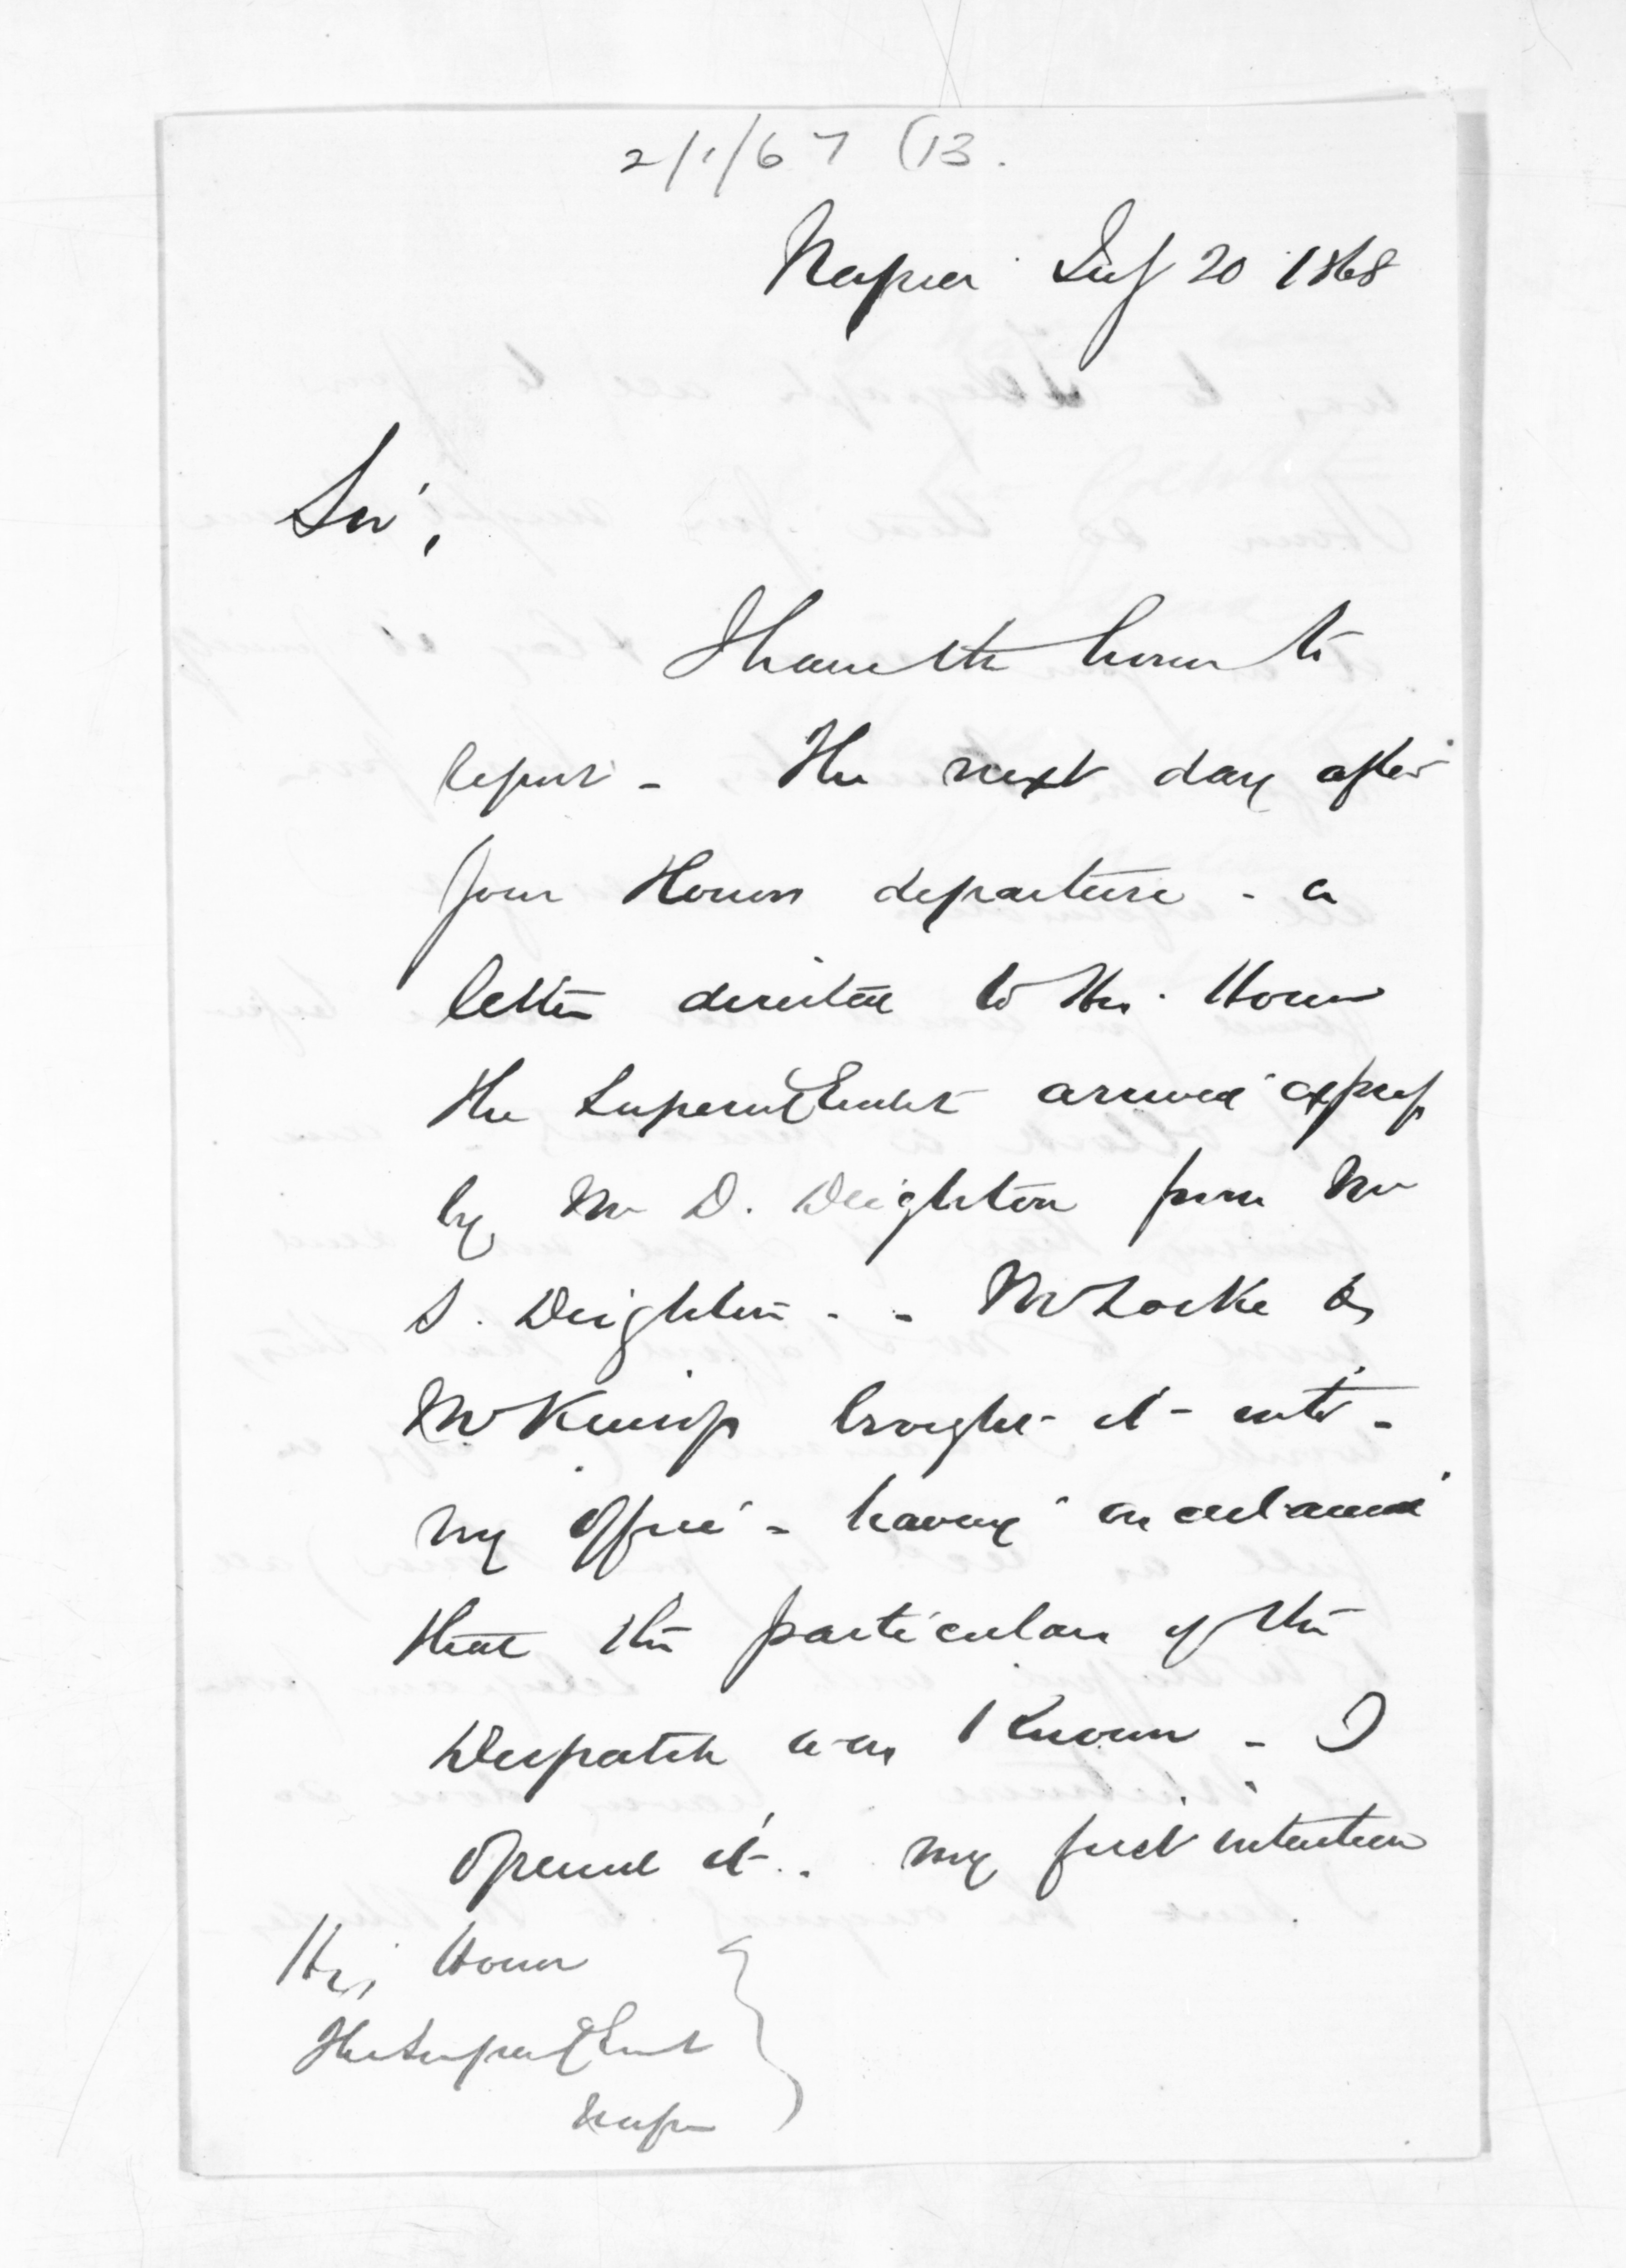 2/1/67 (13.
Napier July 20 1868
Sir,
I have the honor to
report - The next day after
your Honors departure - a
letter directed to His Honor
the Superintendent arrived express
by Mr D. Deighton from Mr
S. Deighton - - Mr Locke &
Mr brought it into -
my office - having ascertained
that the particulars of the
Despatch was known - I
opened it - my first intention
His Honor
The Superintendent
Napier